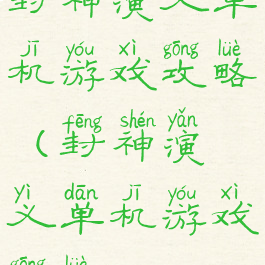 封神演义单
jī yóu xì gōng lüè
机游戏攻略
fēng shén yǎn
(封神演
yì dān jī yóu xì
义单机游戏
gōng lüè